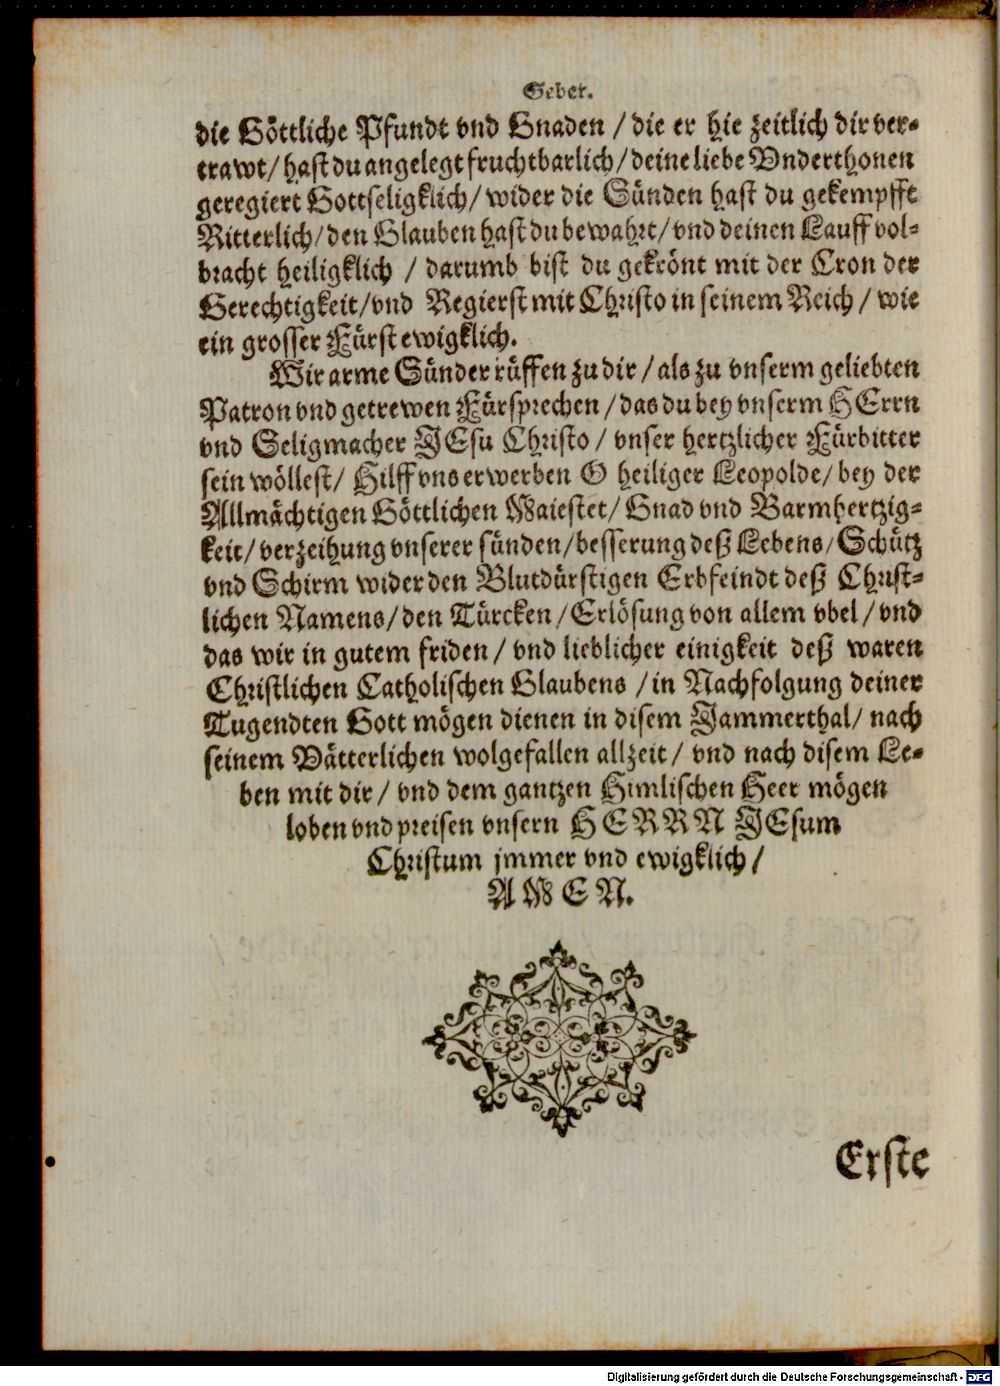 Gebet.
die Göttliche Pfundt vnd Gnaden / die er hie zeitlich dir ver-
trawt / hast du angelegt fruchtbarlich / deine liebe Vnderthonen
geregiert Gottseligklich / wider die Sünden hast du gekempfft
Ritterlich / den Glauben hast du bewahrt / vnd deinen Lauff vol-
bracht heiligklich / darumb bist du gekrönt mit der Cron der
Gerechtigkeit / vnd Regierst mit Christo in seinem Reich / wie
ein grosser Fürst ewigklich.
Wir arme Sünder rüffen zu dir / als zu vnserm geliebten
Patron vnd getrewen Fürsprechen / das du bey vnserm HErrn
vnd Seligmacher JEsu Christo / vnser hertzlicher Fürbitter
sein wöllest / Hilff vns erwerben O heiliger Leopolde / bey der
Allmächtigen Göttlichen Maiestet / Gnad vnd Barmhertzig-
keit / verzeihung vnserer sünden / besserung deß Lebens / Schütz
vnd Schirm wider den Blutdürstigen Erbfeindt deß Christ-
lichen Namens / den Türcken / Erlösung von allem vbel / vnd
das wir in gutem friden / vnd lieblicher einigkeit deß waren
Christlichen Catholischen Glaubens / in Nachfolgung deiner
Tugendten Gott mögen dienen in disem Jammerthal / nach
seinem Vätterlichen wolgefallen allzeit / vnd nach disem Le-
ben mit dir / vnd dem gantzen Himlischen Heer mögen
loben vnd preisen vnsern HERRN JEsum
Christum jmmer vnd ewigklich /
AMEN.
Erste
Digitalisierung gefördert durch die Deutsche Forschungsgemeinschaft - DFG